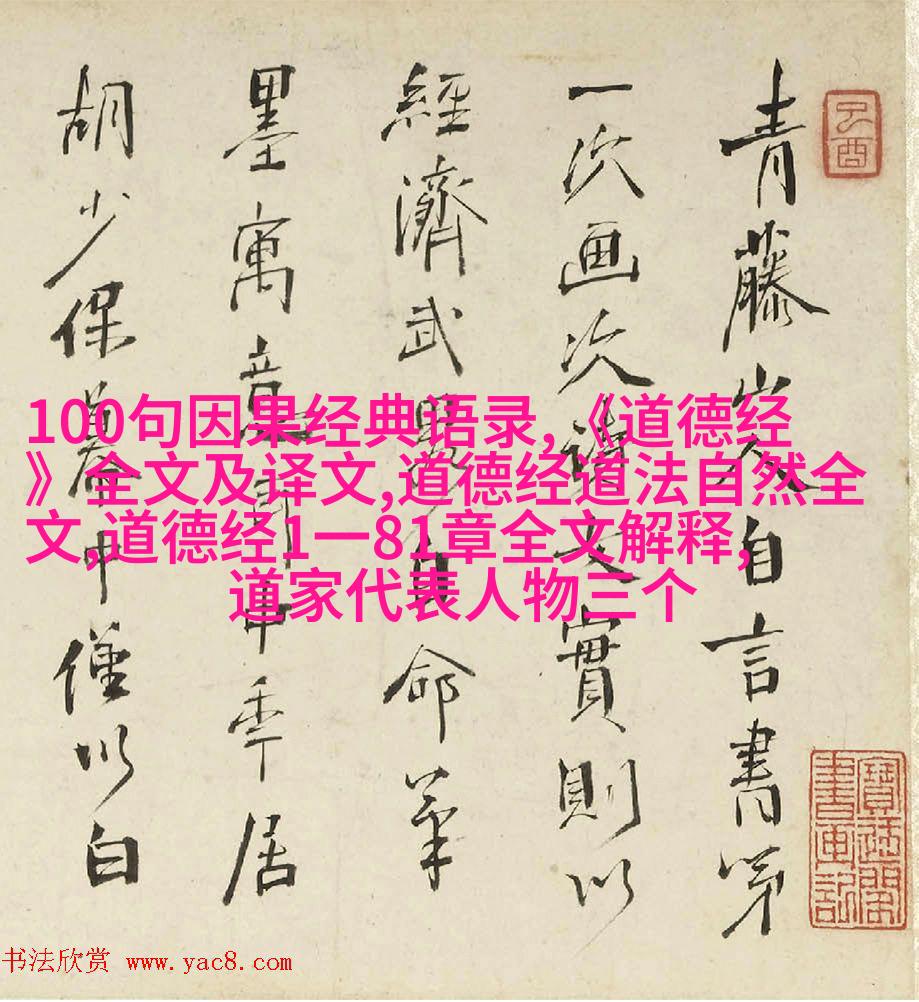 己酉
青藤山人自言書第
一次画次文實則以
經濟武自命筆
墨寓意耳中年居
胡少保幕中僅以白
100句因果经典语录,《道德经
》全文及译文,道德经道法自然全
文,道德经1一81章全文解释,
道家代表人物三个
寶迂閣
書畫記
书法欣赏 www.yac8.com